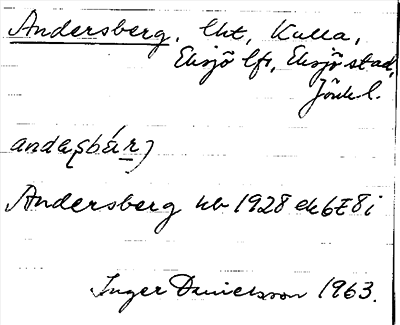 Andersberg, lht, Kulla,
Eksjö lfs, Eksjö stad,
Jönk l.
Andersberg hb 1928 ek 6E8i
Inger Danielsson 1963.